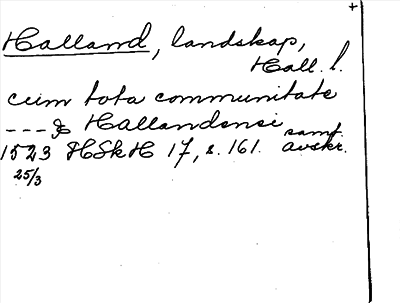 +
Halland, landskap,
Hall. l.
cum tota communitate
--- Hallandensi samt.
1523 HSkH 17, s. 161. avskr.
25/3